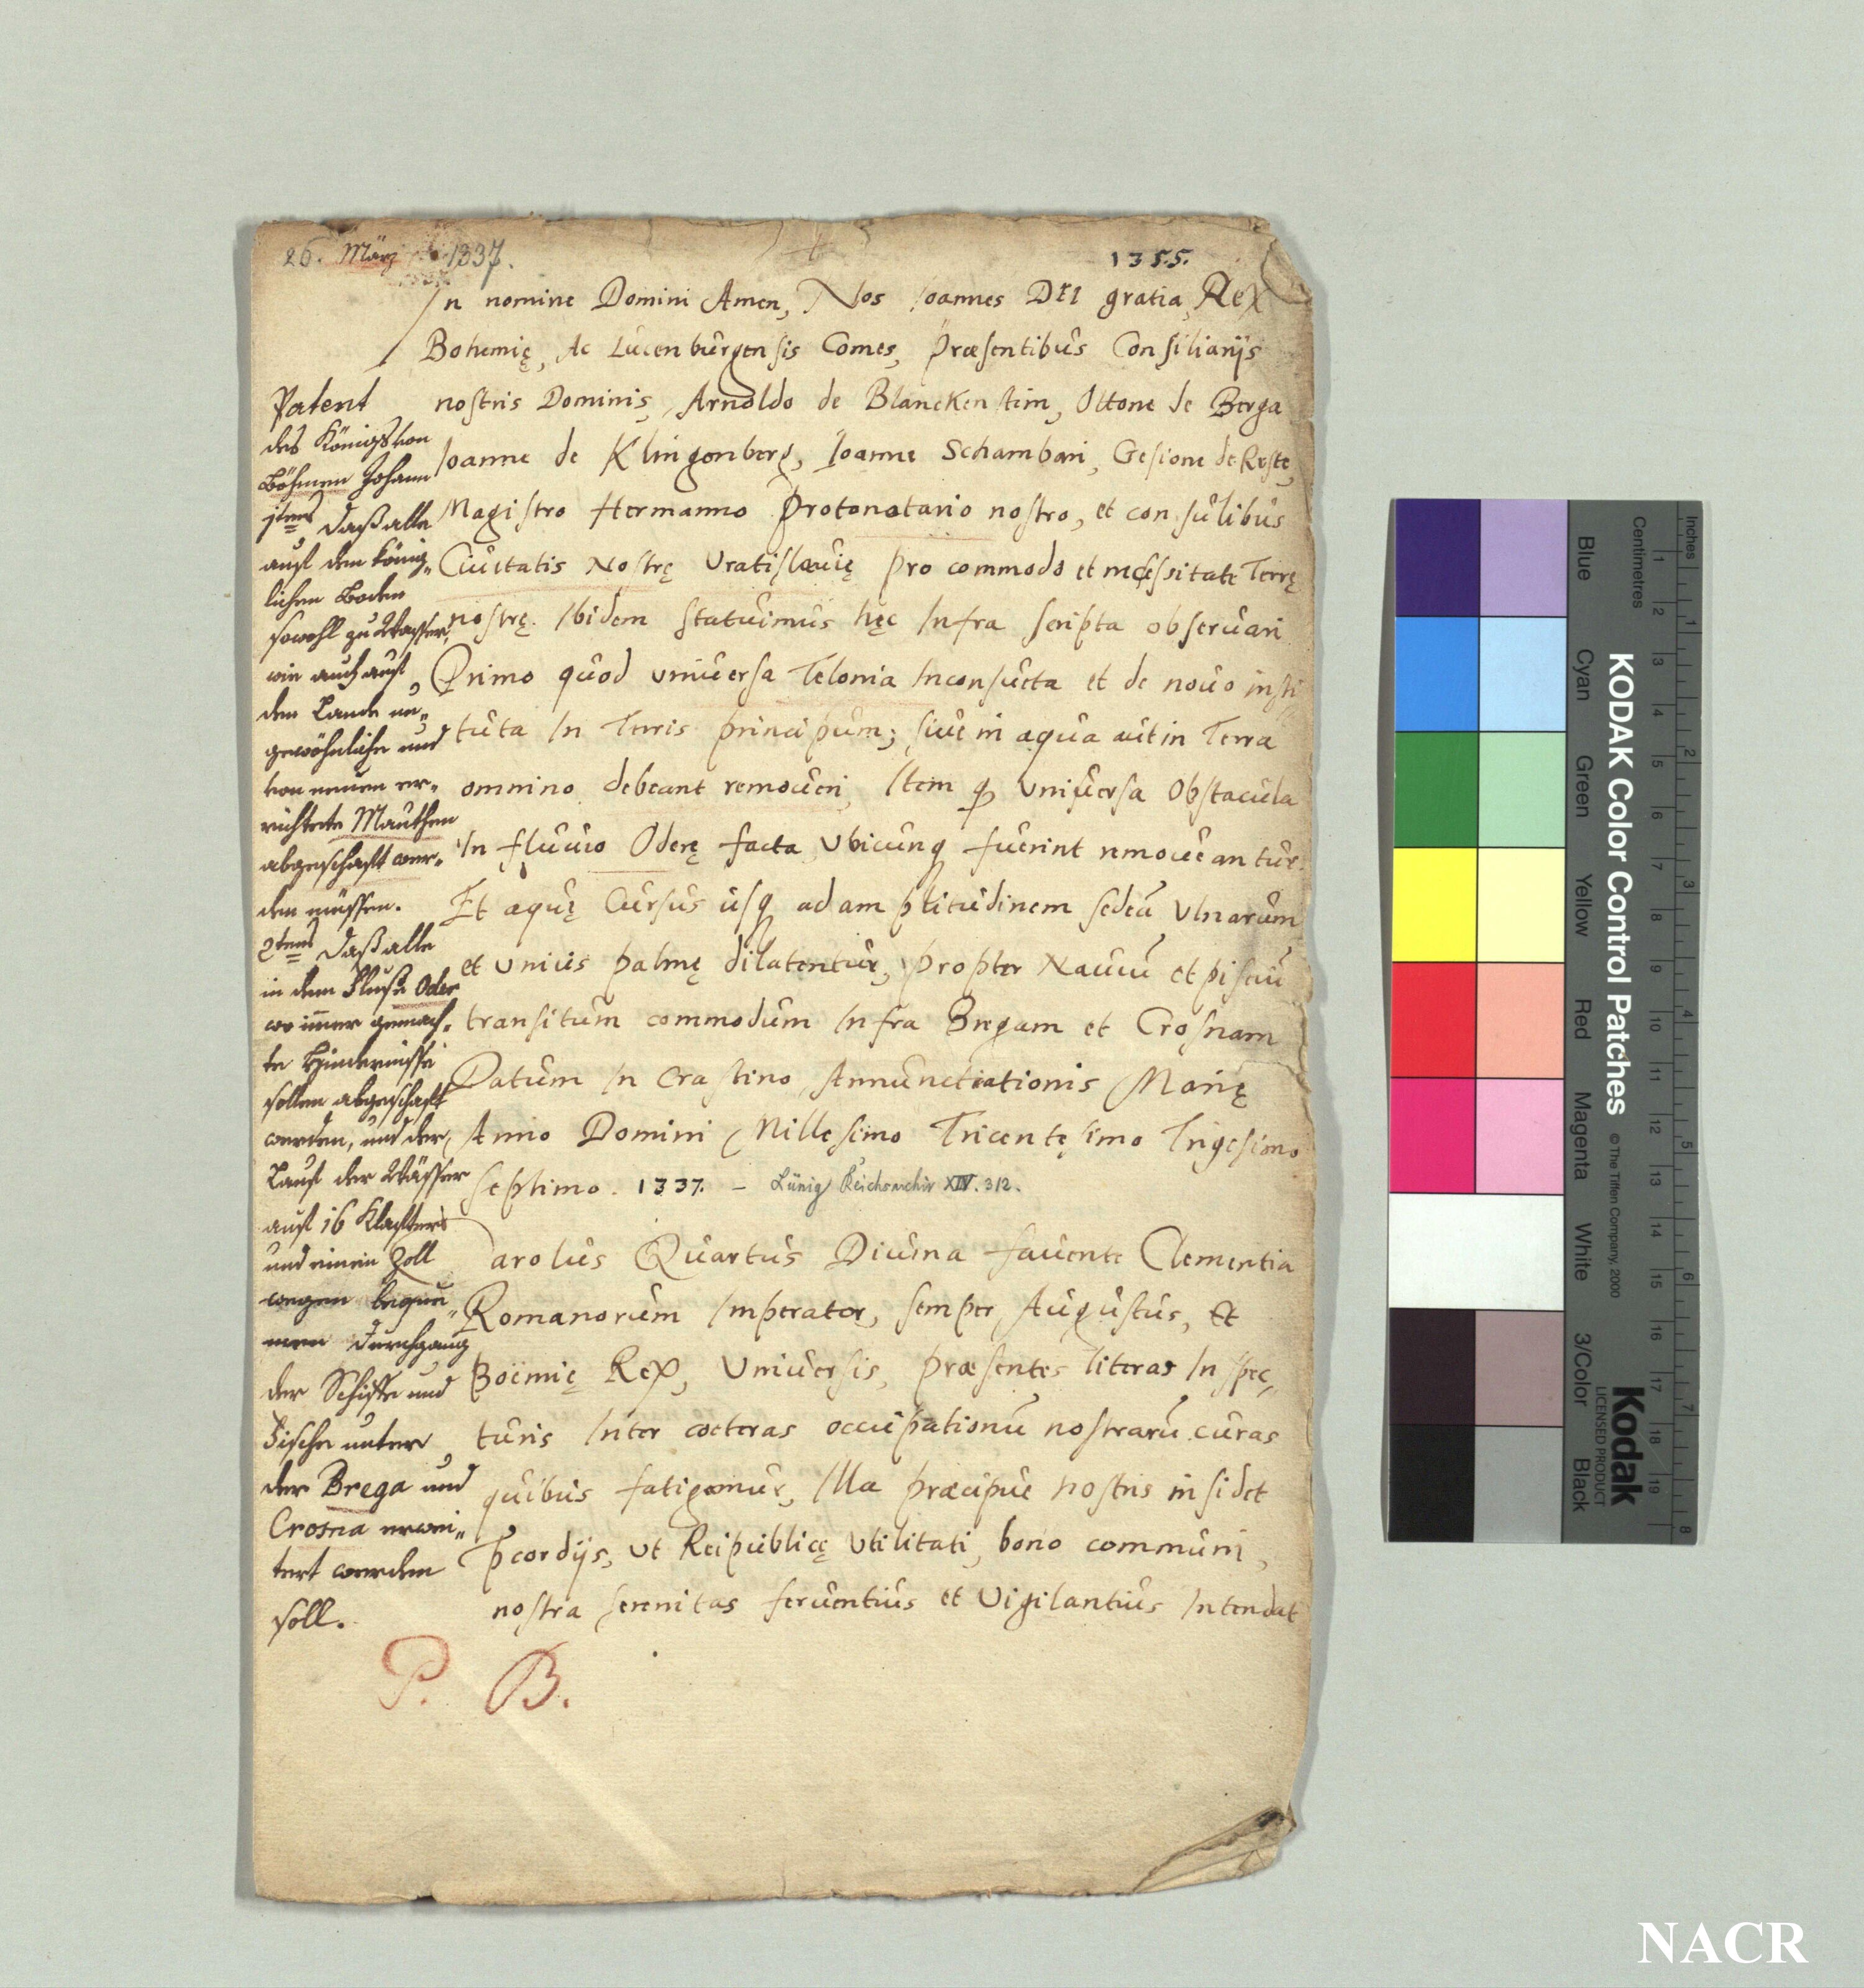 26. März 1337.
1355.
In nomine Domini Amen, Nos Ioannes DEI gratia, Rex
Bohemię, Ac Lucenburgensis Comes, Præsentibus Consiliarijs
nostris Dominis, Arnoldo de Blanckenstein, Ottone de Berga
Ioanne de Klingenberg, Ioanne Schambari, Gesione de Reste,
Magistro Hermanno Protonotario nostro, et consulibus
Ciuitatis Nostrę Vratislauię pro commodo et necessitate Terrę
nostrę. Ibidem Statuimus hęc Infra scripta obseruari
Primo quod vniuersa Telonia Inconsueta et de nouo insti
tuta In Terris principum; siue in aqua aut in Terra
omnino debeant remoueri, Item q Vniuersa Obstacula
In fluuio Oderę facta Vbicunq fuerint remoueantur.
Et aquę Cursus usq ad amplitudinem sedeci Vlnarum
et vnius palmę dilatentur, propter Nauiū et pisciū
transitum commodum Infra Bregam et Crosnam
Datum In Crastino Annunctiationis Marię
Anno Domini Millesimo Tricentęsimo Trigesimo
septimo. 1337. – Lünig Reichsarchiv XIV. 312.
Carolus Quartus Diuina fauente Clementia
Romanorum Imperator, semper Augustus, Et
Boëmię Rex, Vniuersis, præsentes literas Inspec„
turis Inter coeteras occupationū nostrarū curas
quibus fatigamur, Illa præcipue nostris insidet
pcordijs, ut Reipublicę Vtilitati, bono communi,
nostra serenitas feruentius et Vigilantius Intendat
Patent
des Königs von
Böhmen Johann
1tens Daß alle
auf dem könig„
lichen Boden
sowohl zu Wasser
wie auch auf
dem Lande un„
gewöhnliche und
von neuen er„
richtete Mauthen
abgeschaft wer„
den müssen.
2tens Daß alle
in dem Fluße Oder
wo im̄er gemach„
te Hindernisse
sollen abgeschaft
werden, und der
Lauf der Wässer
auf 16 Klafters
und einen Zoll
wegen beque„
men Durchgang
der Schiffe und
Fische unter
der Brega und
Crosna erwei„
tert werden
soll.
P. B.
KODAK Color Control Patches
© The Tiffen Company, 2000
Kodak
LICENSED PRODUCT
Inches
Centimetres
1 2 3 4 5 6 7 8
1 2 3 4 5 6 7 8 9 10 11 12 13 14 15 16 17 18 19
Blue
Cyan
Green
Yellow
Red
Magenta
White
3/Color
Black
NACR